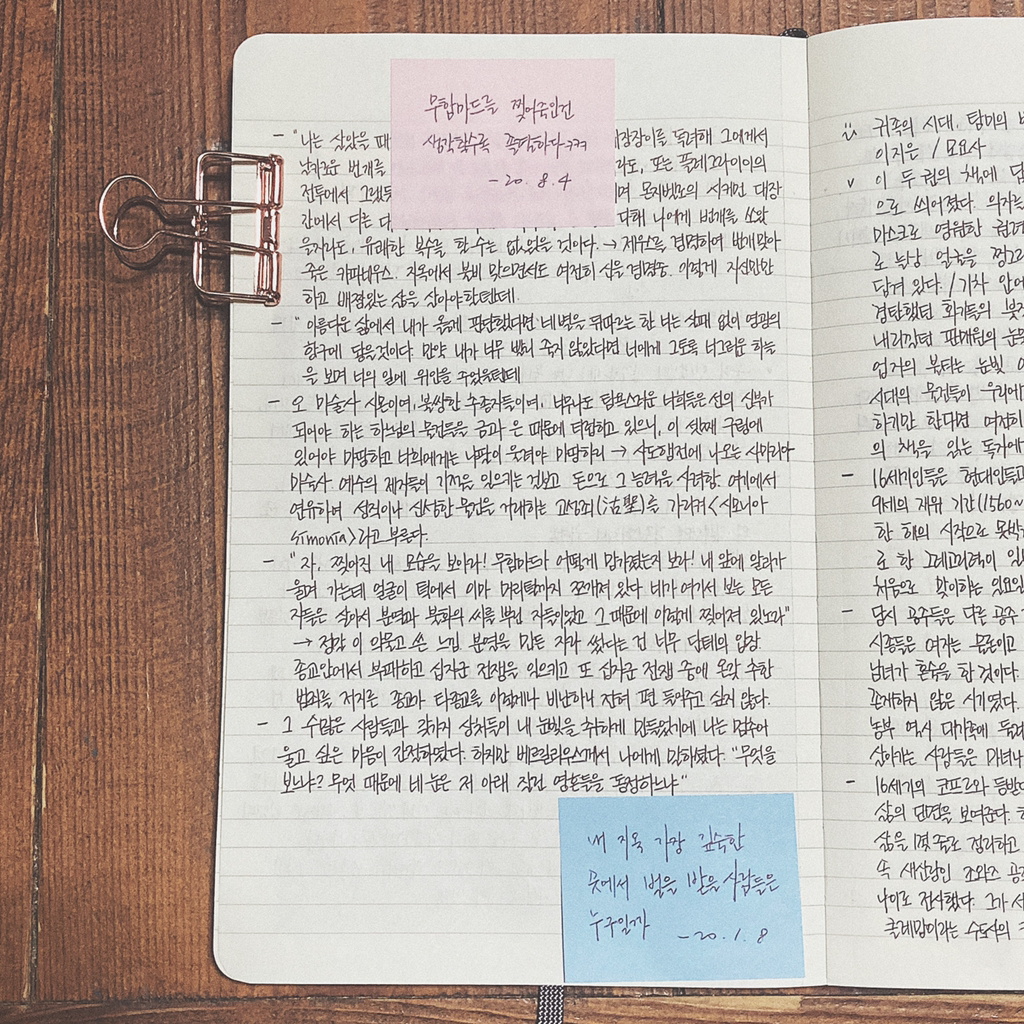 무함마드를 찢어죽인건
생각할수록 쫄린하다ㅋㅋ
-20. 8. 4
- "나는 살았을 때 대장장이를 독려해 그에게서
날카로운 번개를 라도, 또는 플레그라이아의
전투에서 그랬듯 며 몬지벨로의 시커먼 대장
간에서 다른 다 다해 나에게 번개를 쏘았
을지라도, 유쾌한 복수를 할 수는 없었을 것이다. → 제우스를 경멸하여 번개맞아
죽은 카파네우스. 지옥에서 불비 맞으면서도 여전히 신을 경멸중. 이렇게 자신만만
하고 배짱있는 삶을 살아야할텐데.
- "아름다운 삶에서 내가 옳게 판단했다면 네 별을 뒤따르는 한 너는 실패 없이 영광의
항구에 닿을것이다. 만약 내가 너무 빨리 죽지 않았다면 너에게 그토록 너그러운 하늘
을 보며 너의 일에 위안을 주었을텐데
- 오 마술사 시몬이여, 불쌍한 추종자들이여, 너무나도 탐욕스러운 너희들은 선의 신부가
되어야 하는 하느님의 물건들을 금과 은 때문에 더럽히고 있으니, 이 셋째 구렁에
있어야 마땅하고 너희에게는 나팔이 울려야 마땅하리 → 사도행전에 나오는 사마리아
마술사. 예수의 제자들이 기적을 일으키는 것보고 돈으로 그 능력을 사려함. 여기에서
연유하여 성직이나 신성한 물건을 거래하는 고성죄(沽聖)를 가리켜 <시모니아
simonia>라고 부른다.
"자, 찢어진 내 모습을 보아라! 무함마드가 어떻게 망가졌는지 보아! 내 앞에 알리가
울며 가는데 얼굴이 턱에서 이마 머리털까지 쪼개져 있다. 네가 여기서 보는 모든
자들은 살아서 분열과 불화의 씨를 뿌린 자들이었고 그 때문에 이렇게 찢어져 있노라"
→ 정작 이 악물고 쓴 느낌. 분열을 만든 자라 썼다는 건 너무 단테의 입장.
종교안에서 부패하고 십자군 전쟁을 일으키고 또 십자군 전쟁 중에 온갖 추한
범죄를 저지른 종교가 타종교를 이렇게나 비난하니 전혀 편 들어주고 싶지 않다.
- 그 수많은 사람들과 갖가지 상처들이 내 눈빛을 취하게 만들었기에 나는 멈추어
울고 싶은 마음이 간절하였다. 하지만 베르길리우스께서 나에게 말하셨다. "무엇을
보느냐? 무엇 때문에 네 눈은 저 아래 잘린 영혼들을 동정하느냐"
내 지옥 가장 깊숙한
곳에서 벌을 받을 사람들은
누구일까 -20. 1. 8
귀족의 시대, 탐미의
이지은 / 모요사
v 이 두 권의 책에 담
으로 씌어졌다. 의자는
마스크로 영원한
로 늘상 얼굴을 찡그리
담겨 있다. / 기차 안에
경탄했던 화가들의 붓
내리깔던 판매원의 눈
업가의 불타는 눈빛
시대의 물건들이 우리에
하기만 한다면 여전히
의 책을 읽는 독자에
- 16세기인들은 현대인들과
9세의 재위 기간(1560~
한 해의 시작으로 못박
로 한 그레고리력이 있
처음으로 맞이하는 일요일
- 당시 공주들은 다른 공주
시종들은 여자는 물론이고
남녀가 혼숙을 한 것이다.
존재하지 않은 시기였다.
농부 역시 대가족에
살아가는 사람들은
- 16세기의 코프르와 등받
삶의 단면을 보여준다.
삶을 몇 줄로 정리하고
속 새신랑인 조와즈 공
나이도 전사했다. 그가
클레망이라는 수도사의